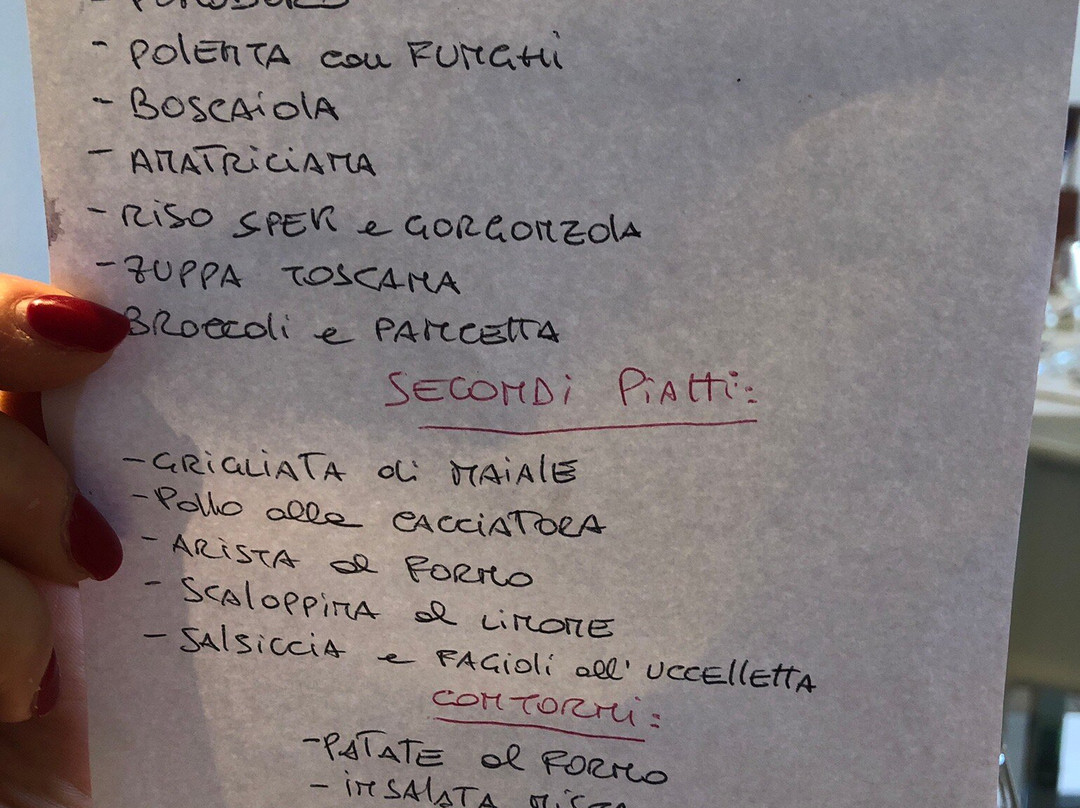 - POMODORO
- POLENTA con FUNGHI
- BOSCAIOLA
- AMATRICIANA
- RISO SPEK e GORGONZOLA
- ZUPPA TOSCANA
BROCCOLI e PANCETTA
SECONDI PIATTI:
- GRIGLIATA di MAIALE
- POLLO alla CACCIATORA
- ARISTA al FORNO
- SCALOPPINA al LIMONE
- SALSICCIA e FAGIOLI all' UCCELLETTA
CONTORNI:
- PATATE al FORNO
- INSALATA MISTA